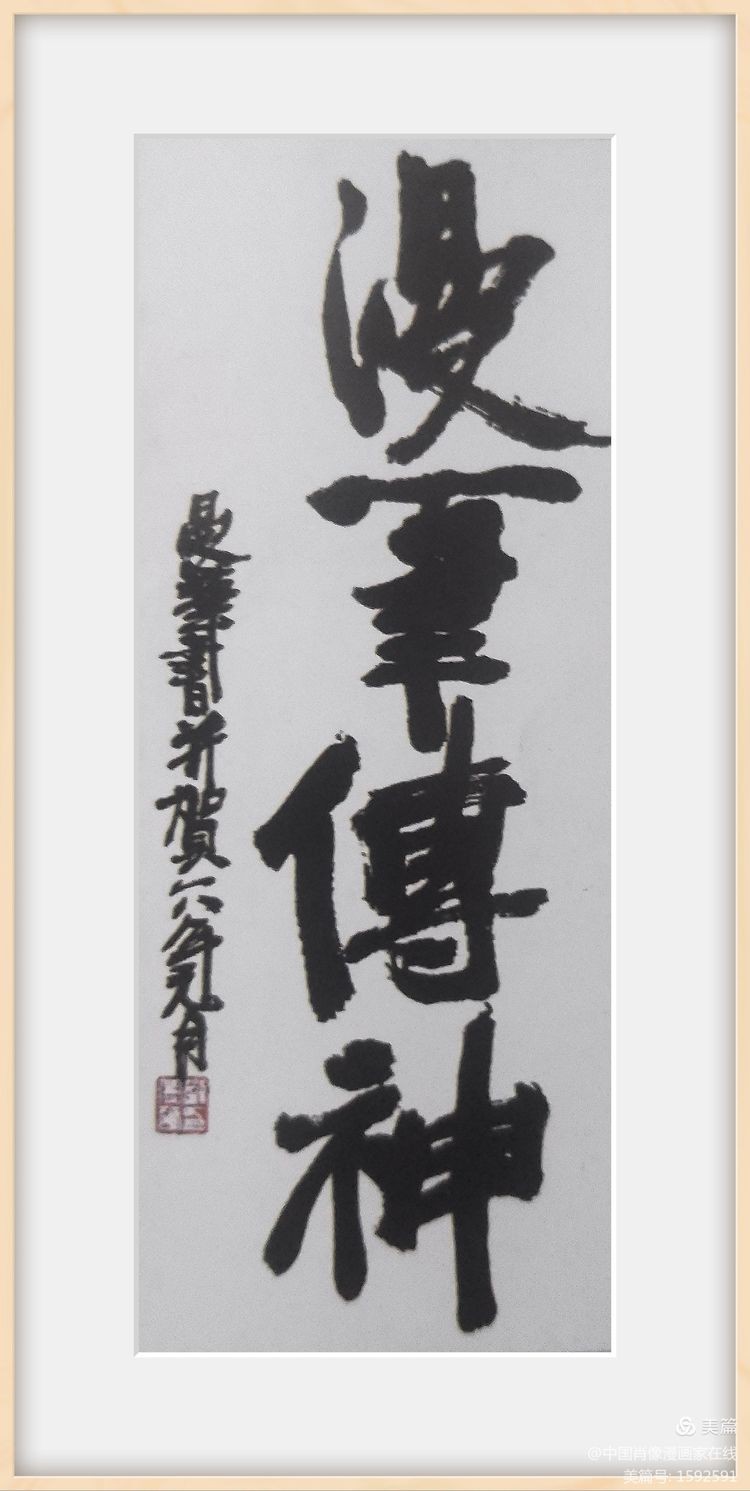 漫事傳神
書并賀一八年元月
美篇
@中国肖像漫画家在线
美篇号: 1592591